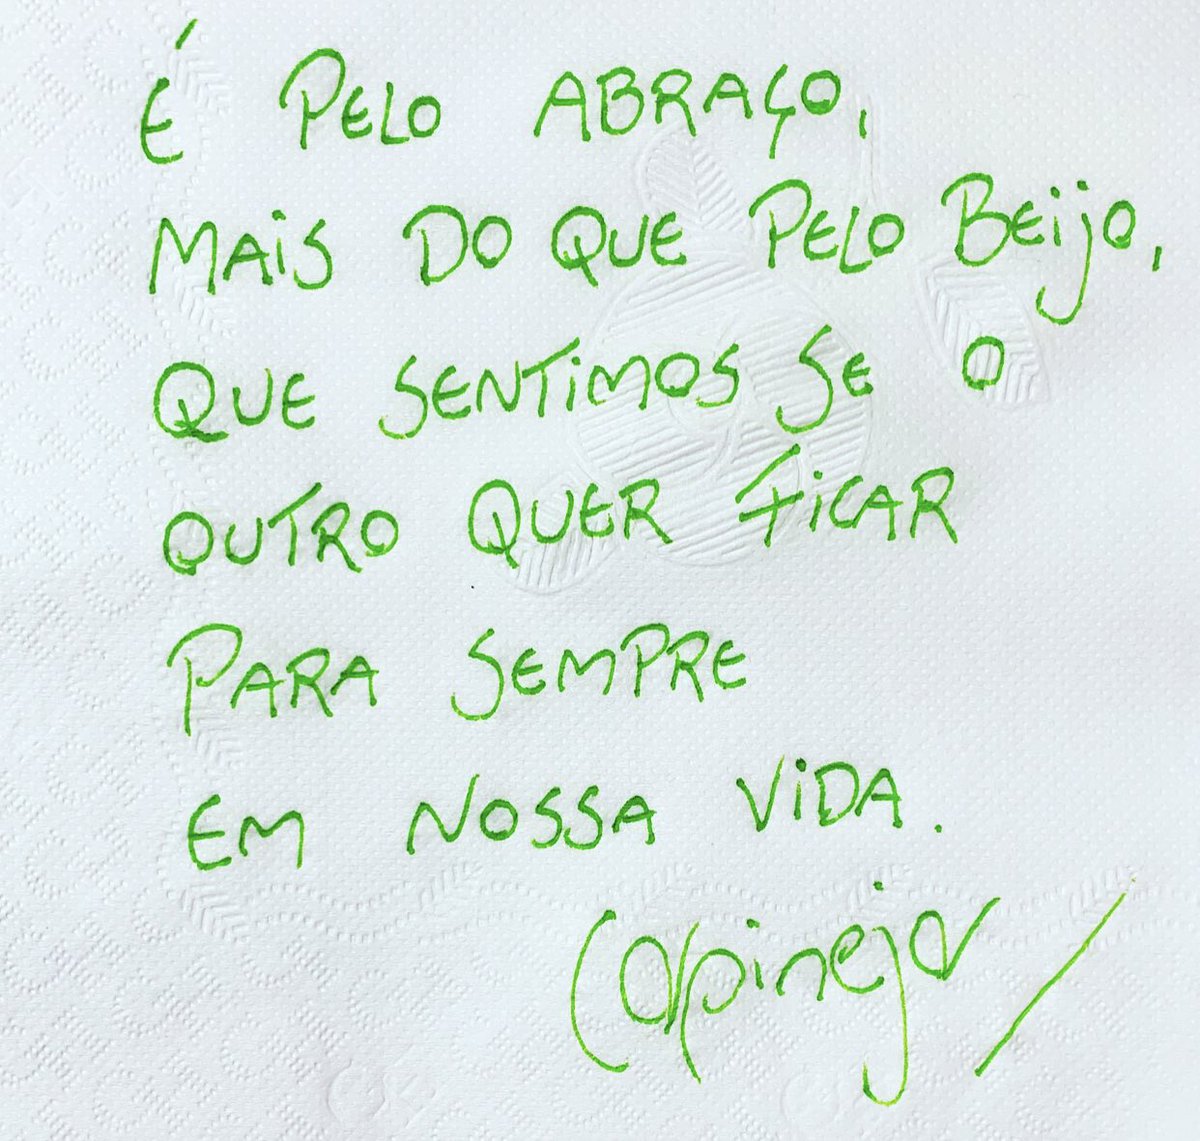 É PELO ABRAÇO,
MAIS DO QUE PELO BEIJO,
QUE SENTIMOS SE O
OUTRO QUER FICAR
PARA SEMPRE
EM NOSSA VIDA.
Carpinejar